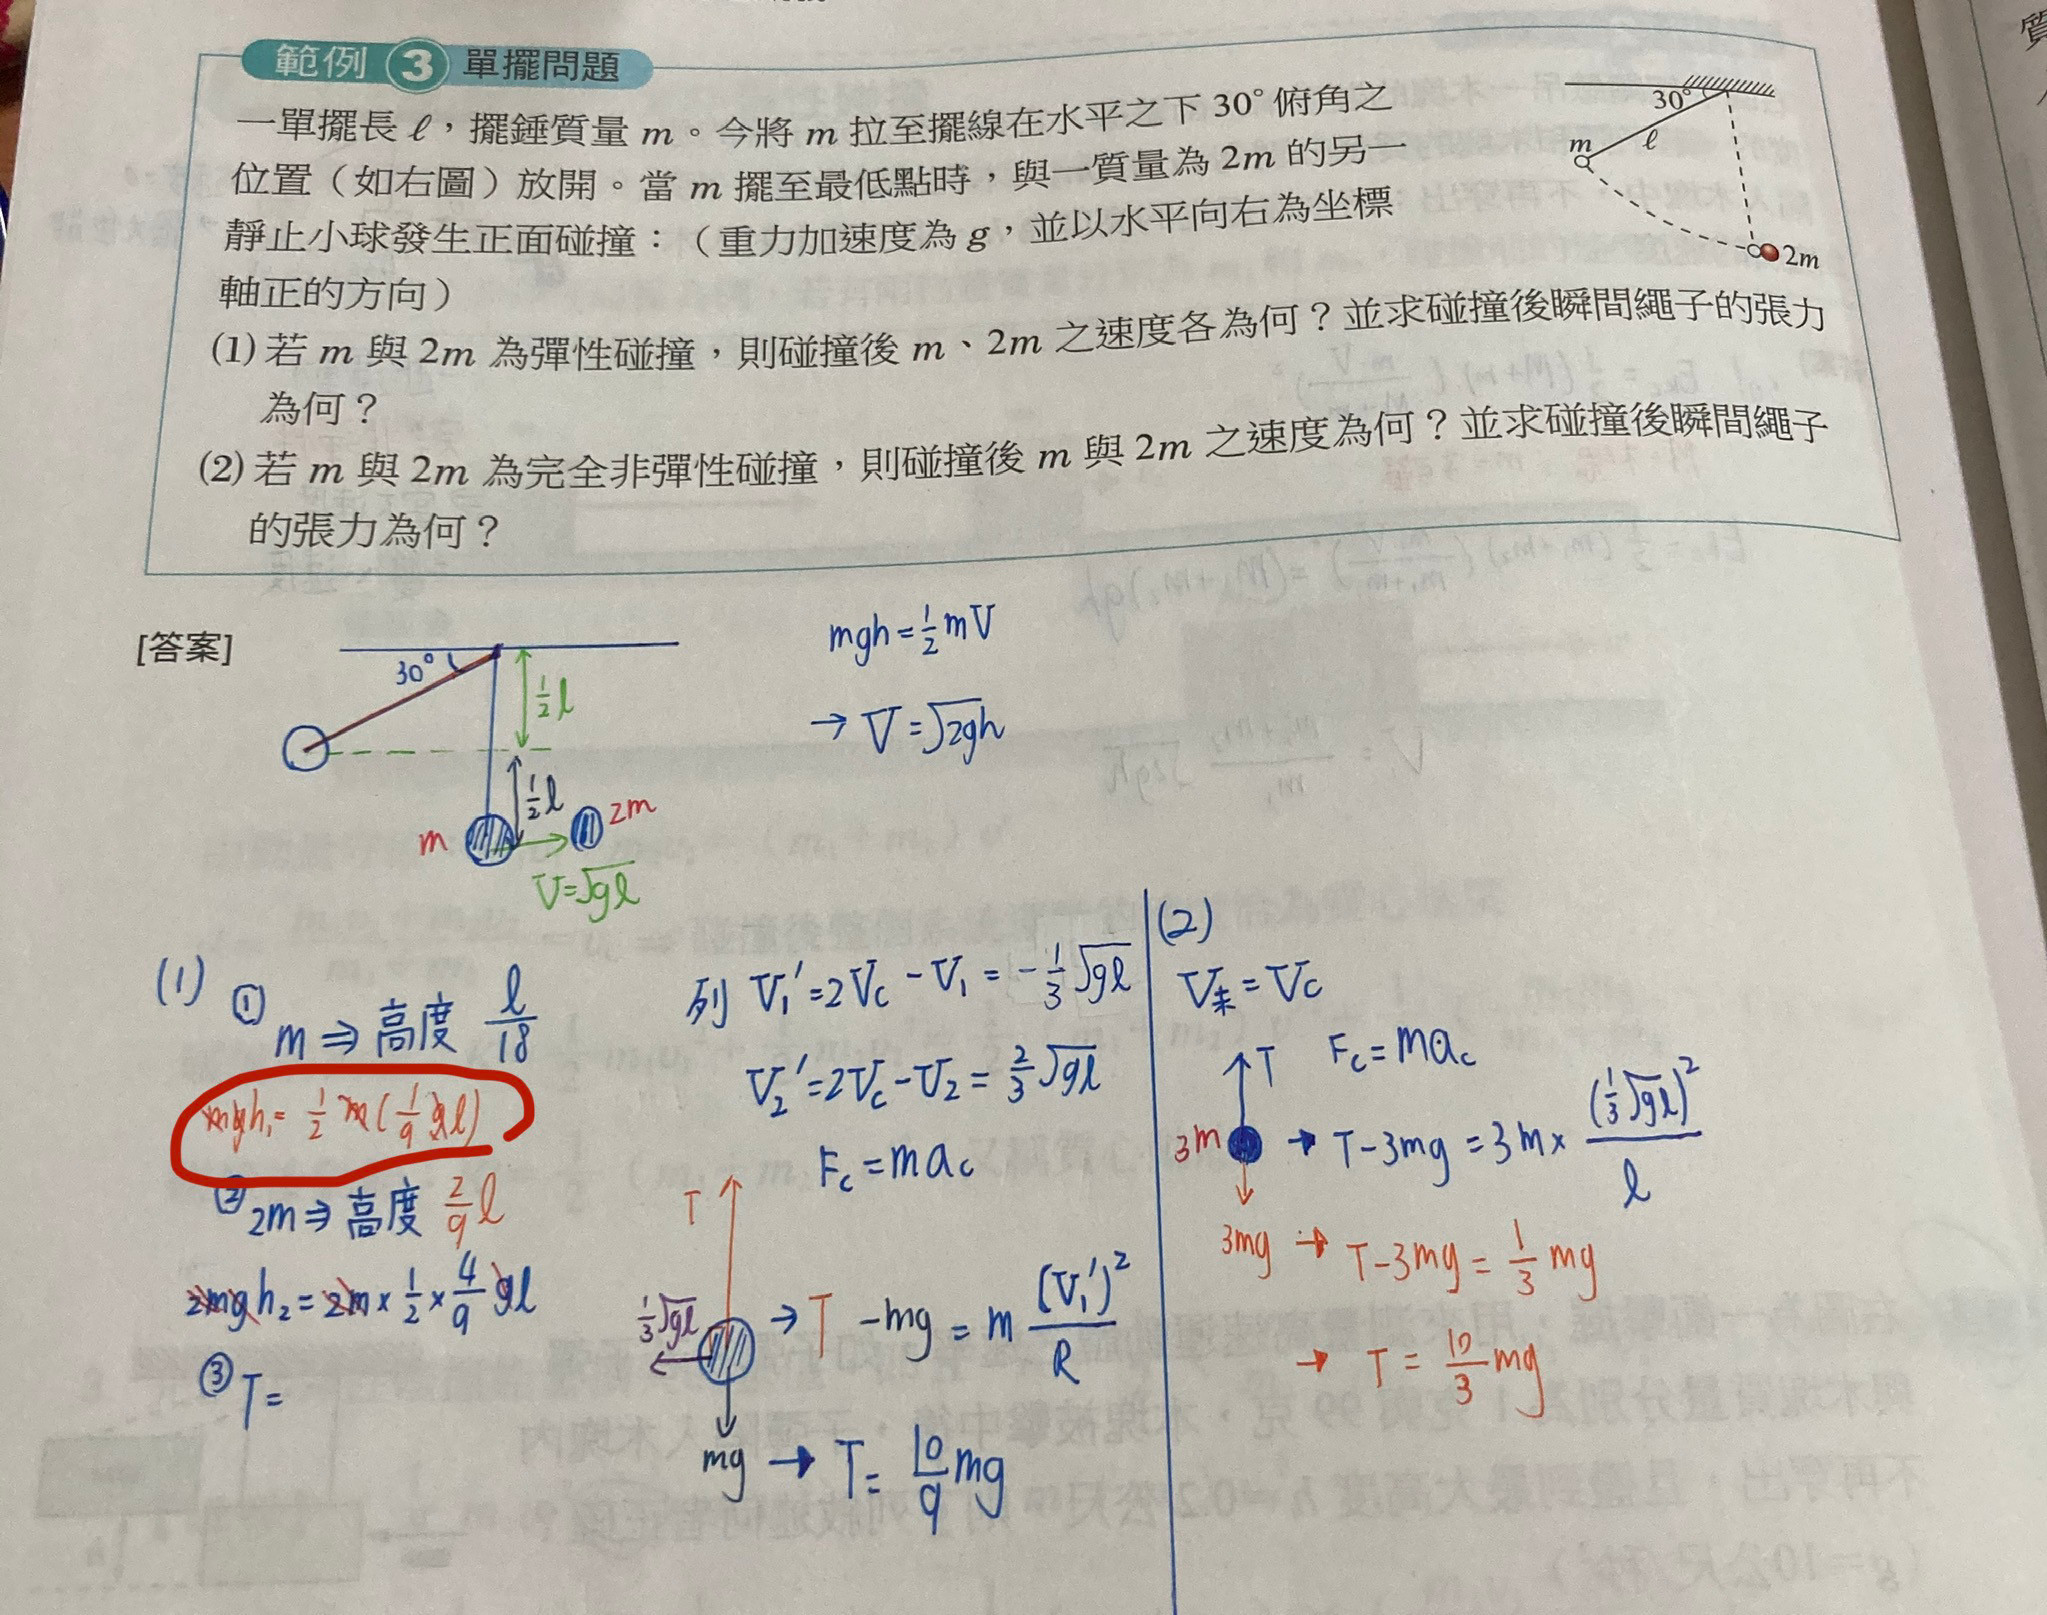 範例 3 單擺問題
一單擺長 ℓ，擺錘質量 m。今將 m 拉至擺線在水平之下 30° 俯角之
位置（如右圖）放開。當 m 擺至最低點時，與一質量為 2m 的另一
靜止小球發生正面碰撞：（重力加速度為 g，並以水平向右為坐標
軸正的方向）
30°
ℓ
m
2m
(1) 若 m 與 2m 為彈性碰撞，則碰撞後 m、2m 之速度各為何？並求碰撞後瞬間繩子的張力
為何？
(2) 若 m 與 2m 為完全非彈性碰撞，則碰撞後 m 與 2m 之速度為何？並求碰撞後瞬間繩子
的張力為何？
[答案]
30°
1/2 ℓ
1/2 ℓ
m
2m
V=√gℓ
mgh=1/2 mV
→ V=√2gh
(1) ① m ⇒ 高度 ℓ/18
mgh₁= 1/2 m(1/9 gℓ)
② 2m ⇒ 高度 2/9 ℓ
2mgh₂ = 2m × 1/2 × 4/9 gℓ
③ T=
列 V₁'=2Vc -V₁ = -1/3 √gℓ
V₂'=2Vc-V₂ = 2/3 √gℓ
Fc = mac
T
1/3 √gℓ
→ T -mg = m (V₁')²/R
mg → T= 10/9 mg
(2)
V末=Vc
T
Fc=mac
3m → T-3mg = 3m× (1/3 √gℓ)²/ℓ
3mg → T-3mg = 1/3 mg
→ T = 10/3 mg